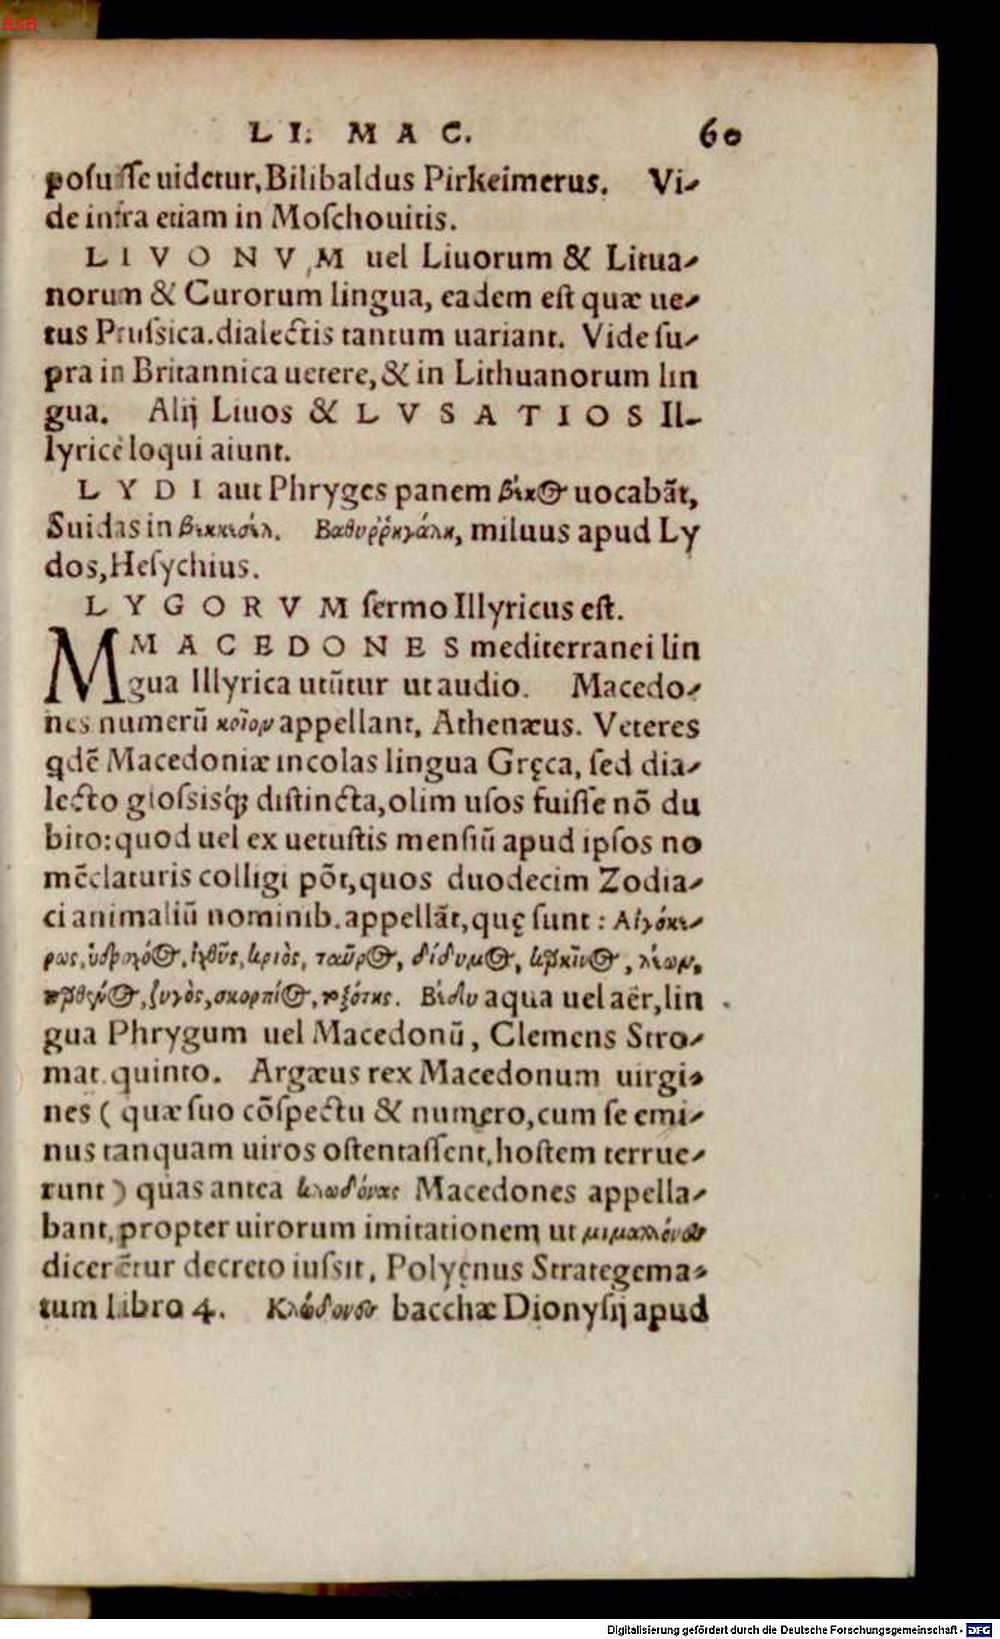 LI. MAC. 60
posuisse uidetur, Bilibaldus Pirkeimerus. Vi-
de infra etiam in Moschouitis.
LIVONVM uel Liuorum & Litua-
norum & Curorum lingua, eadem est quæ ue-
tus Prussica. dialectis tantum uariant. Vide su-
pra in Britannica uetere, & in Lithuanorum lin
gua. Alij Liuos & LVSATIOS Il-
lyricè loqui aiunt.
LYDI aut Phryges panem βέκος uocabãt,
Suidas in βεκκεσέλ. Βαθυῤῥηγάλη, miluus apud Ly
dos, Hesychius.
LYGORVM sermo Illyricus est.
MMACEDONES mediterranei lin
gua Illyrica utũtur ut audio. Macedo-
nes numerũ κοῖον appellant, Athenæus. Veteres
qdẽ Macedoniæ incolas lingua Gręca, sed dia-
lecto glossisq́; distincta, olim usos fuisse nõ du
bito: quod uel ex uetustis mensiũ apud ipsos no
mẽclaturis colligi põt, quos duodecim Zodia-
ci animaliũ nominib. appellãt, quę sunt: Αἰγόκε-
ρως, ὑδροχόος, ἰχθῦς, κριὸς, ταῦρος, δίδυμος, καρκῖνος, λέων,
παρθένος, ζυγὸς, σκορπίος, τοξότης. Βέδυ aqua uel aër, lin
gua Phrygum uel Macedonũ, Clemens Stro-
mat. quinto. Argæus rex Macedonum uirgi-
nes (quæ suo cõspectu & numero, cum se emi-
nus tanquam uiros ostentassent, hostem terrue-
runt) quas antea κλωδόνας Macedones appella-
bant, propter uirorum imitationem ut μιμαλλόνες
dicerẽtur decreto iussit, Polyęnus Strategema-
tum libro 4. Κλώδονες bacchæ Dionysij apud
Digitalisierung gefördert durch die Deutsche Forschungsgemeinschaft - DFG